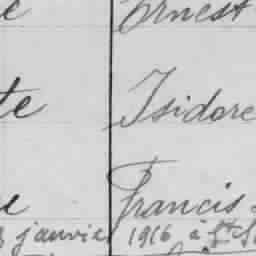 Ernest
te Isidore
Francis
janvier 1916 à St